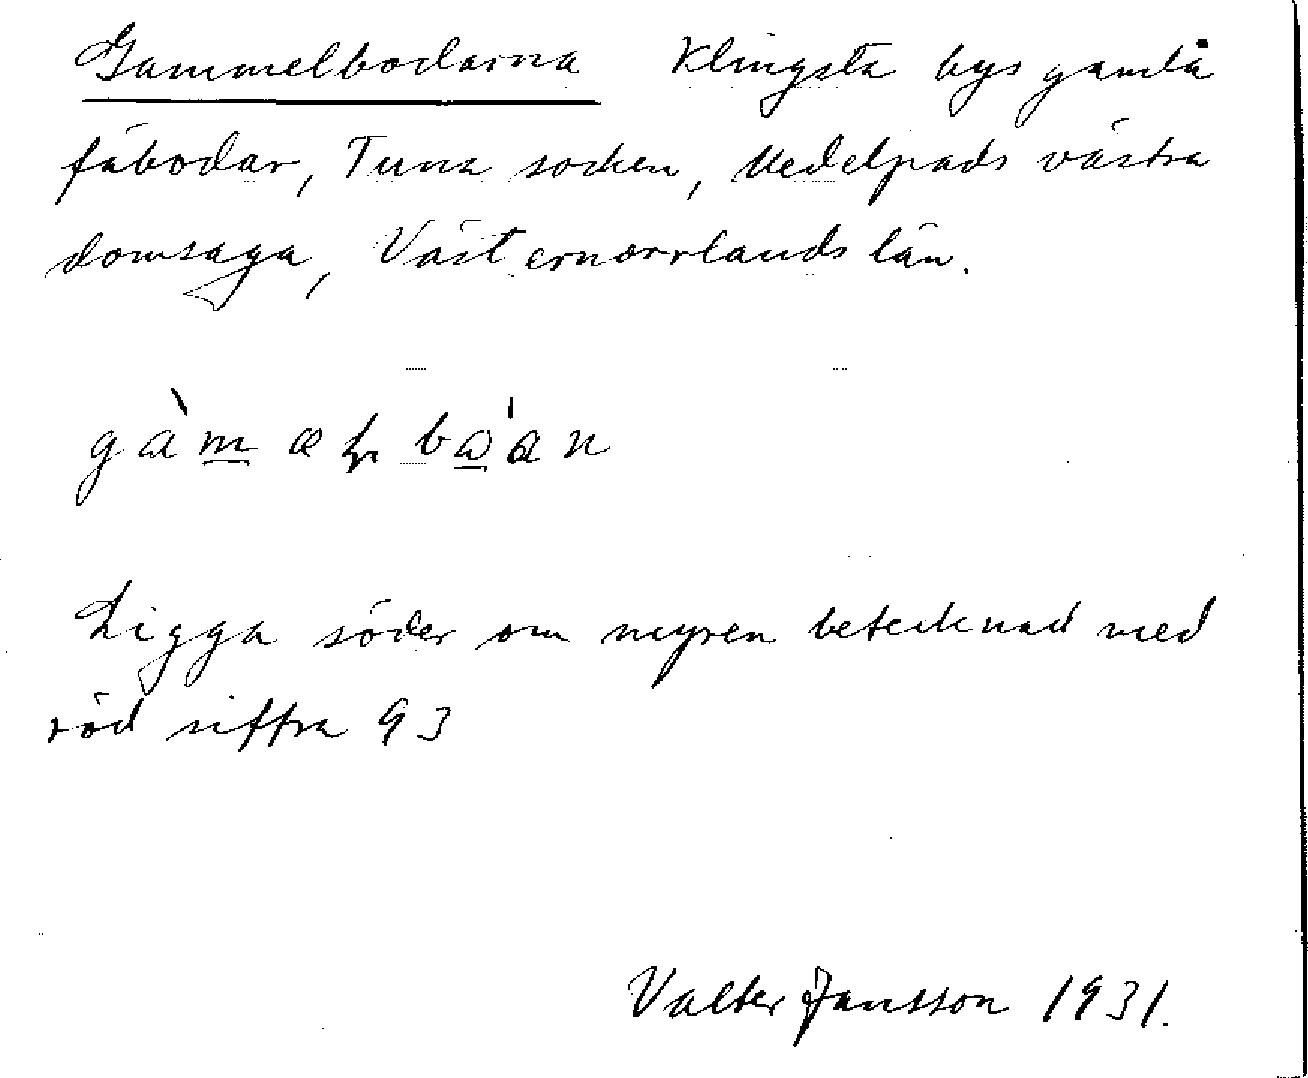 Gammelbodarna Klingsta bys gamla
fäbodar, Tuna socken, Medelpads västra
domsaga, Västernorrlands län.
Ligga söder om myren betecknad med
röd siffra 93
Valter Jansson 1931.